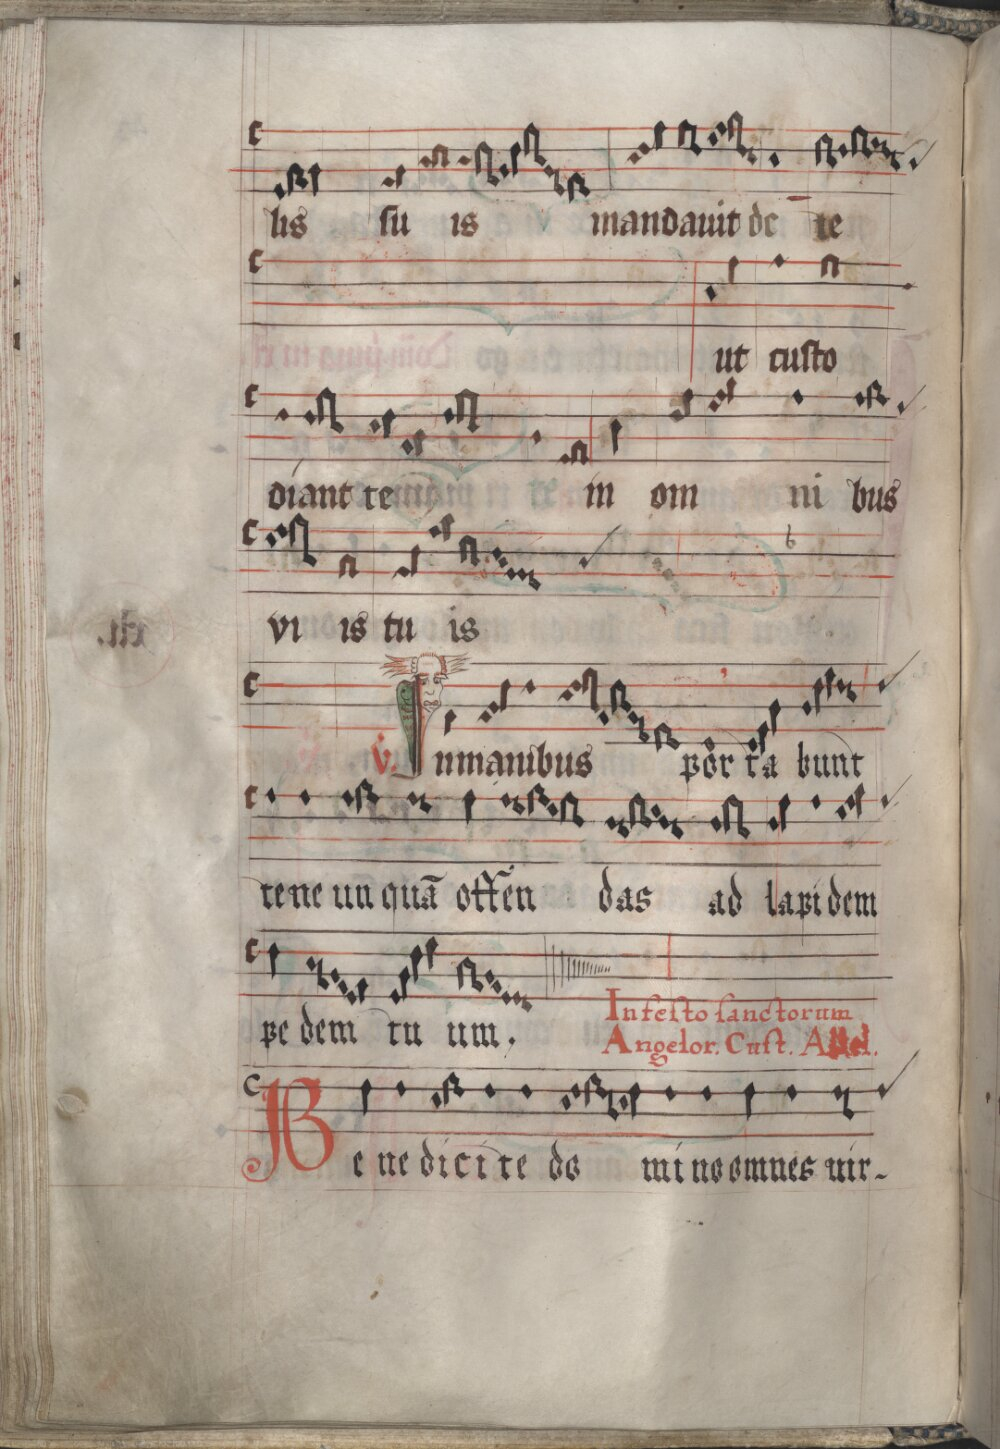 lis su is mandauit de te
ut custo
diant te in om ni bus
vi is tu is
℣. In manibus por ta bunt
te ne un quā offen das ad lapidem
pe dem tu um.
In festo sanctorum
Angelor. Cust.
Be ne di ci te do mi no omnes uir-